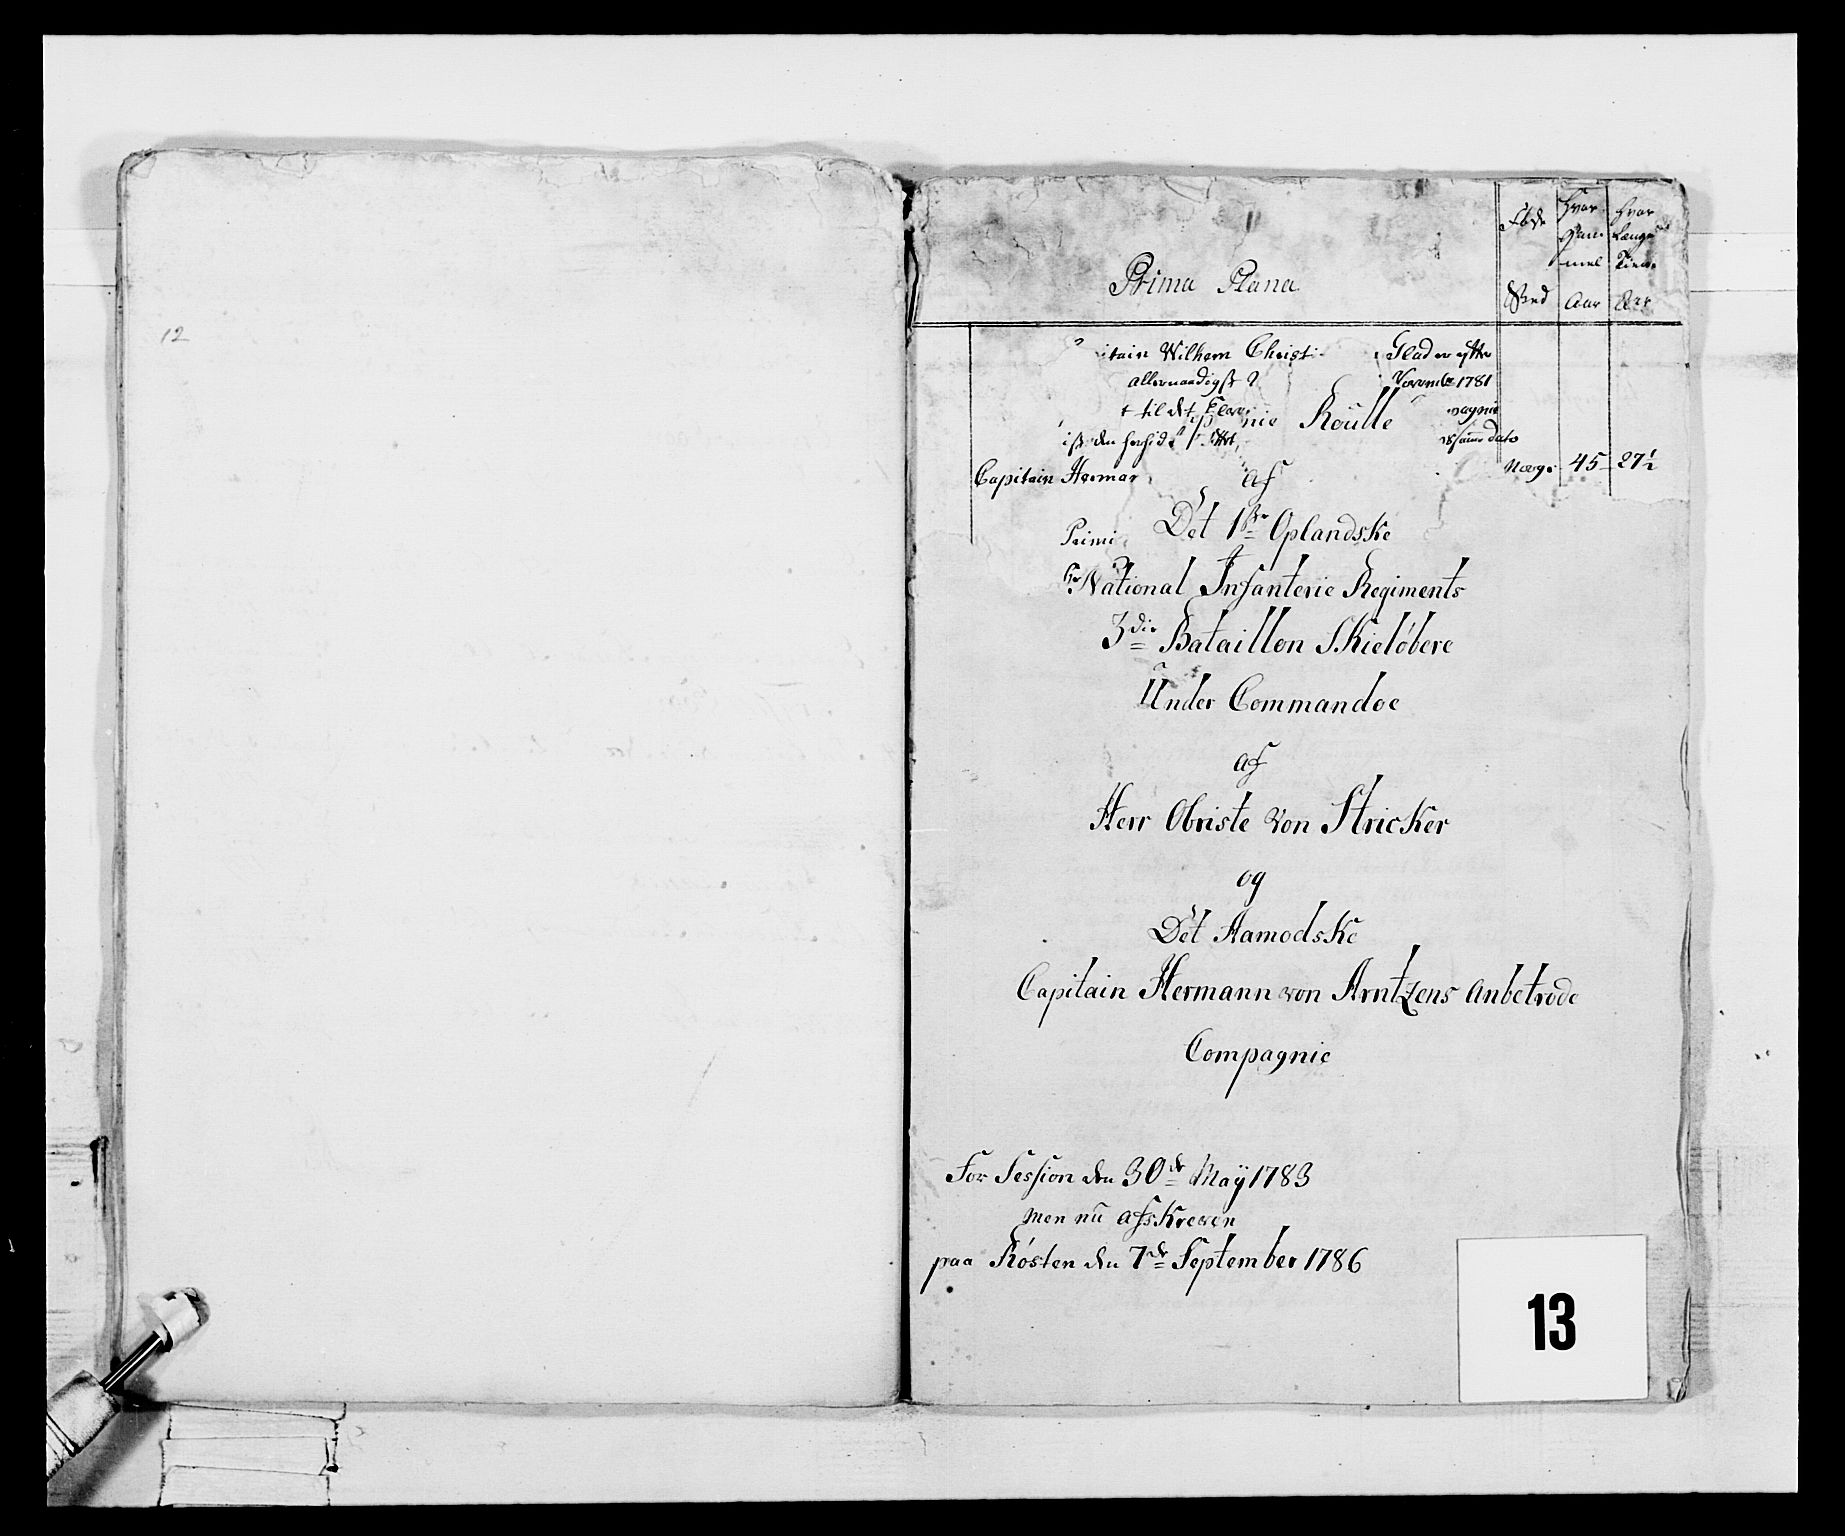 12
Prima Plana
Føde
Sted
Hvor
Gam
mel
Aar
Hvor
Længe
Tient
Aar
itain Wilhem Christi
Glad er efter
allernaadigst
November 1781
til det
nie Roulle
Capitain Herman
Norge 45 27½
af
Primi
Det 1ste Oplandske
National Infanterie Regiments
3die Bataillon Skieløbere
Under Commandoe
af
Herr Obriste von Stricker
og
Det Aamodske
Capitain Hermann von Arntzens anbetrode
Compagnie
For Session den 30de May 1783
Men nu afskreven
paa Røsten den 7de September 1786
13